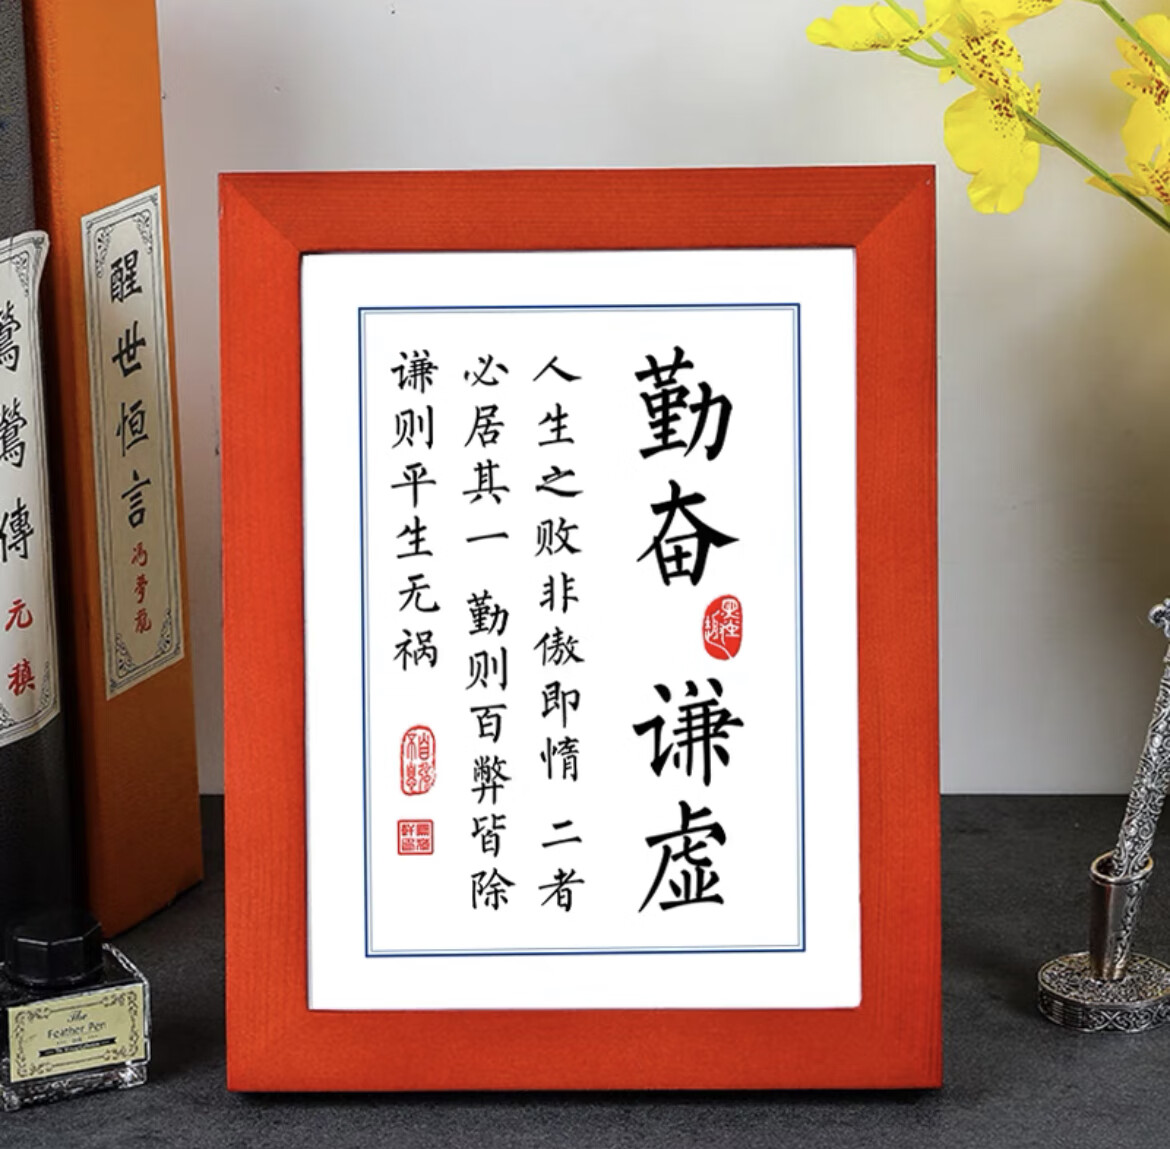 勤奋 谦虚
人生之败非傲即惰 二者
必居其一 勤则百弊皆除
谦则平生无祸
自强不息
醒世恒言
冯梦龙
莺莺傳
元稹
The
Feather Pen